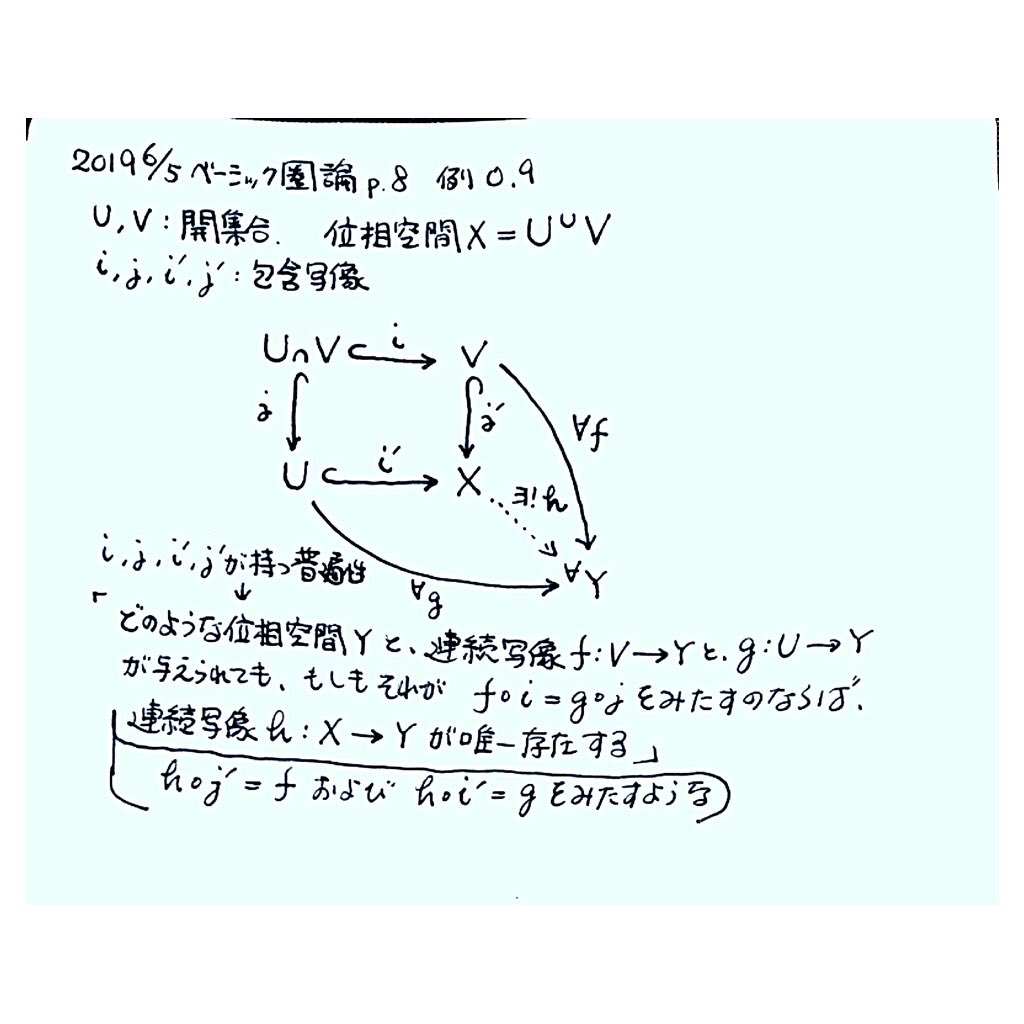 2019 6/5 ベーシック圏論 p.8 例 0.9
U, V : 開集合. 位相空間 X = U∪V
i, j, i′, j′ : 包含写像
U∩V i V
j j′ ∀f
U i′ X ∃! h
∀g ∀Y
i, j, i′, j′が持つ普遍性
↓
「どのような位相空間Yと、連続写像 f : V → Y と、g : U → Y
が与えられても、もしもそれが f∘i = g∘j をみたすのならば、
連続写像 h : X → Y が唯一存在する」
h∘j′ = f および h∘i′ = g をみたすような